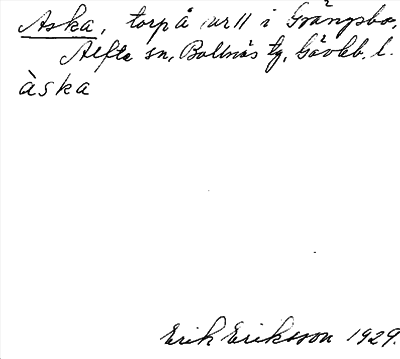 Aska, torp å nr 11 i Grängsbo,
Alfta sn, Bollnäs tg, Gävleb. l.
àska
Erik Eriksson 1929.